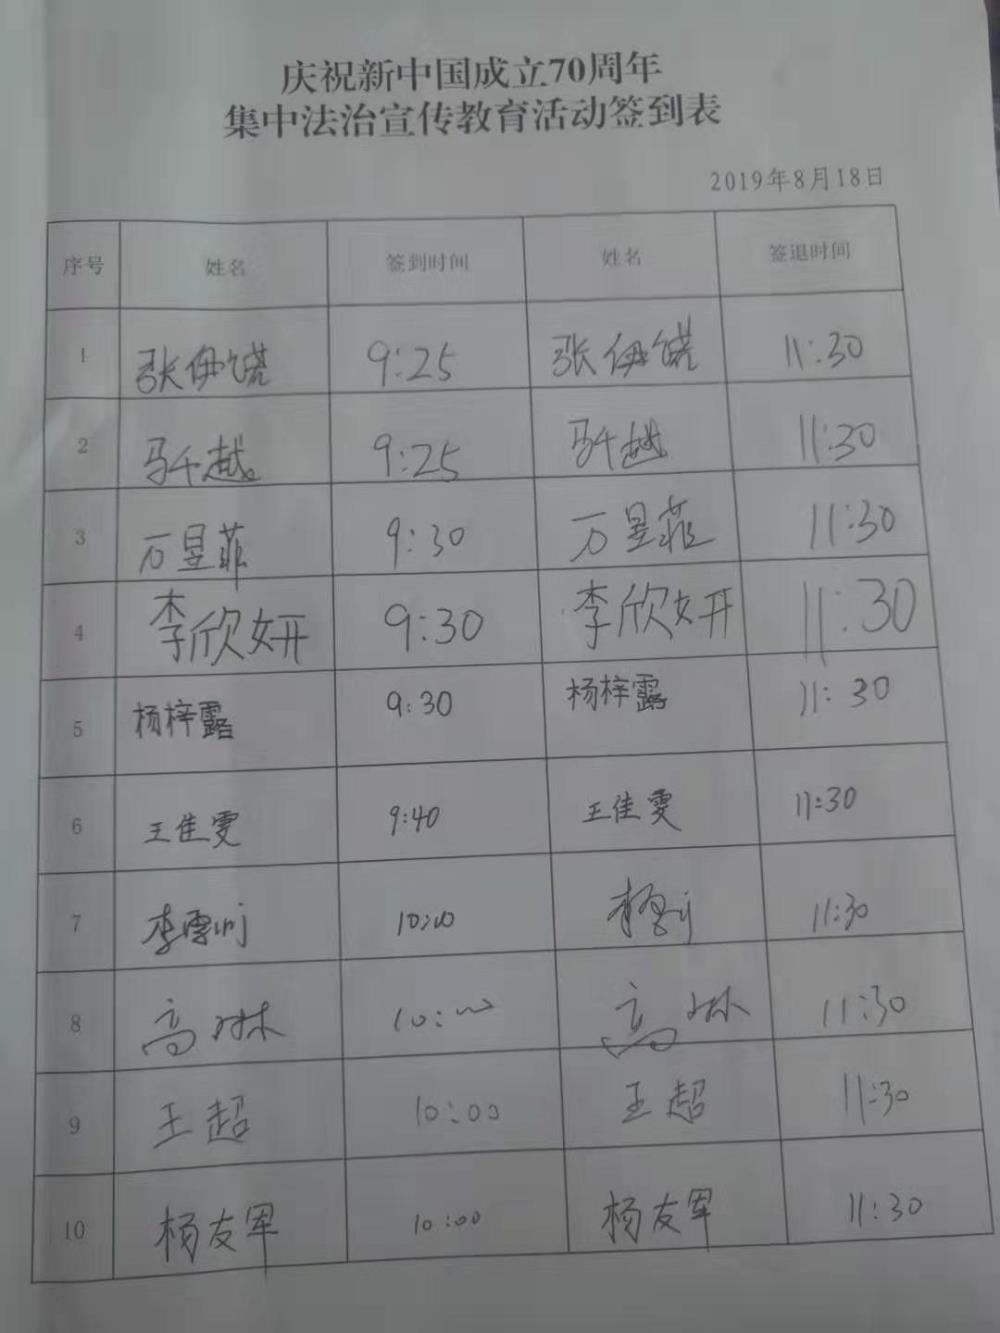 庆祝新中国成立70周年
集中法治宣传教育活动签到表
2019年8月18日
序号 姓名 签到时间 姓名 签退时间
1 张伊 9:25 张伊 11:30
2 马千越 9:25 马千越 11:30
3 万昱菲 9:30 万昱菲 11:30
4 李欣妍 9:30 李欣妍 11:30
5 杨梓露 9:30 杨梓露 11:30
6 王佳雯 9:40 王佳雯 11:30
7 李 10:00 11:30
8 高琳 10:00 高琳 11:30
9 王超 10:00 王超 11:30
10 杨友军 10:00 杨友军 11:30